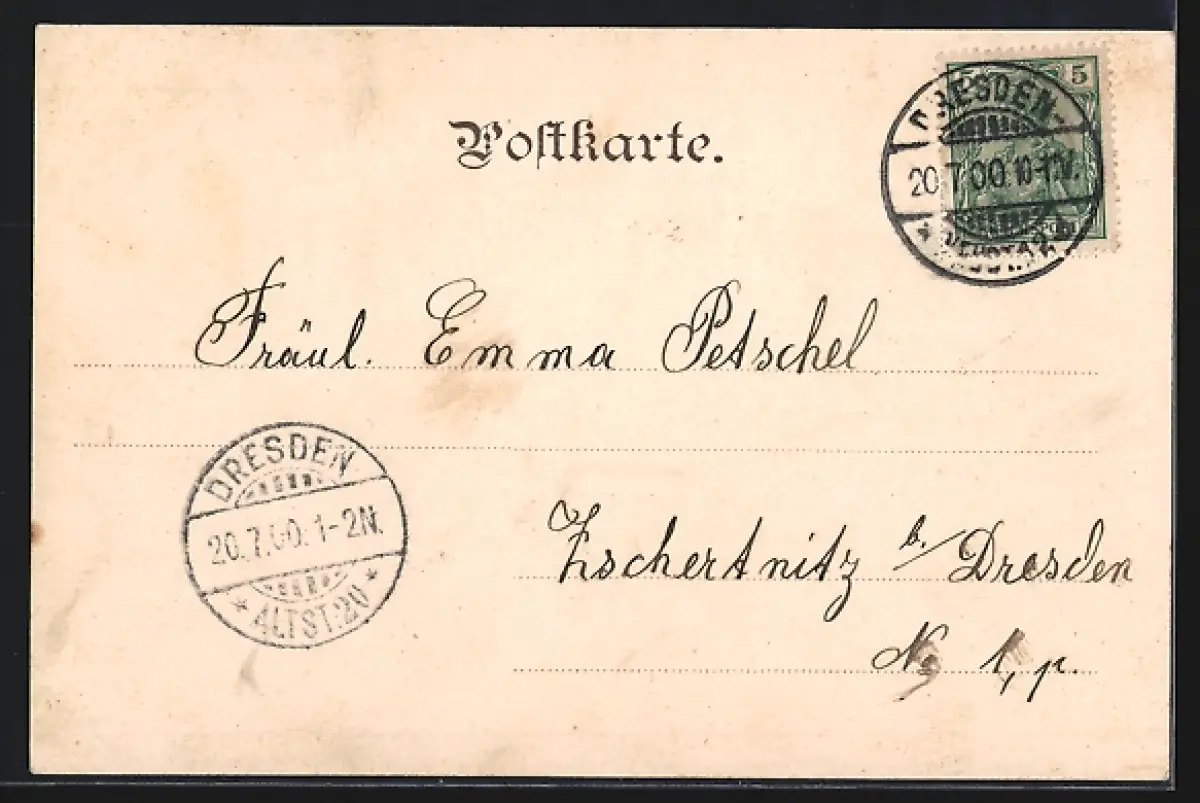 Postkarte.
5
DRESDEN-
20.7.00.10-1N.
* NEUSTADT
Fräul. Emma Petschel
DRESDEN
20.7.00.1-2N.
* ALTST.20 *
Zschertnitz b./Dresden
No 1, p.